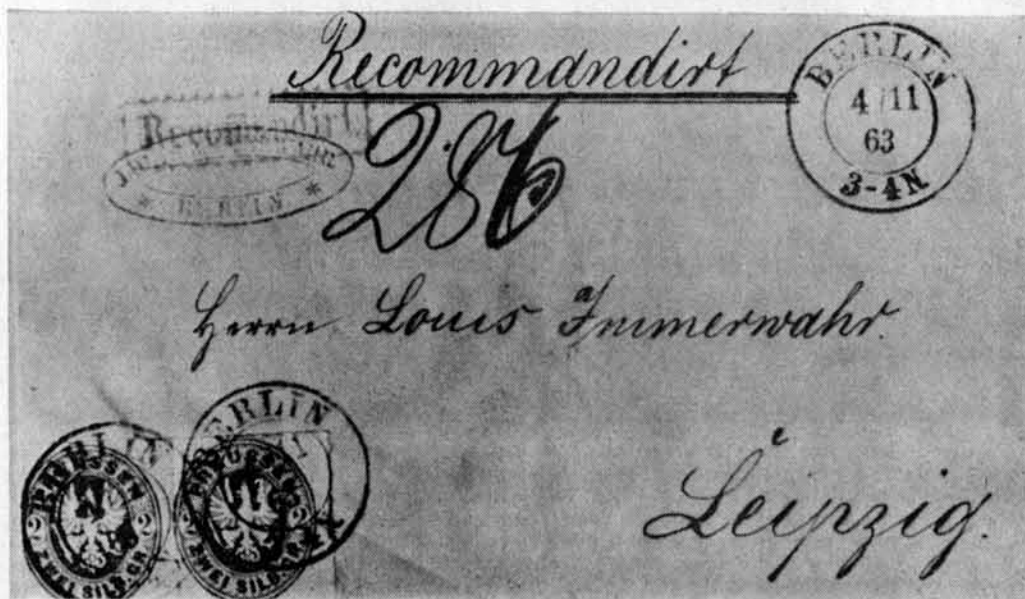 Recommandirt
BERLIN
4/11
63
3-4N
Recomandirt
* BERLIN *
286
Herrn Louis Immerwahr.
Leipzig.
BERLIN
PREUSSEN
2 2
ZWEI SILB.GR.
BERLIN
PREUSSEN
2 2
ZWEI SILB.GR.